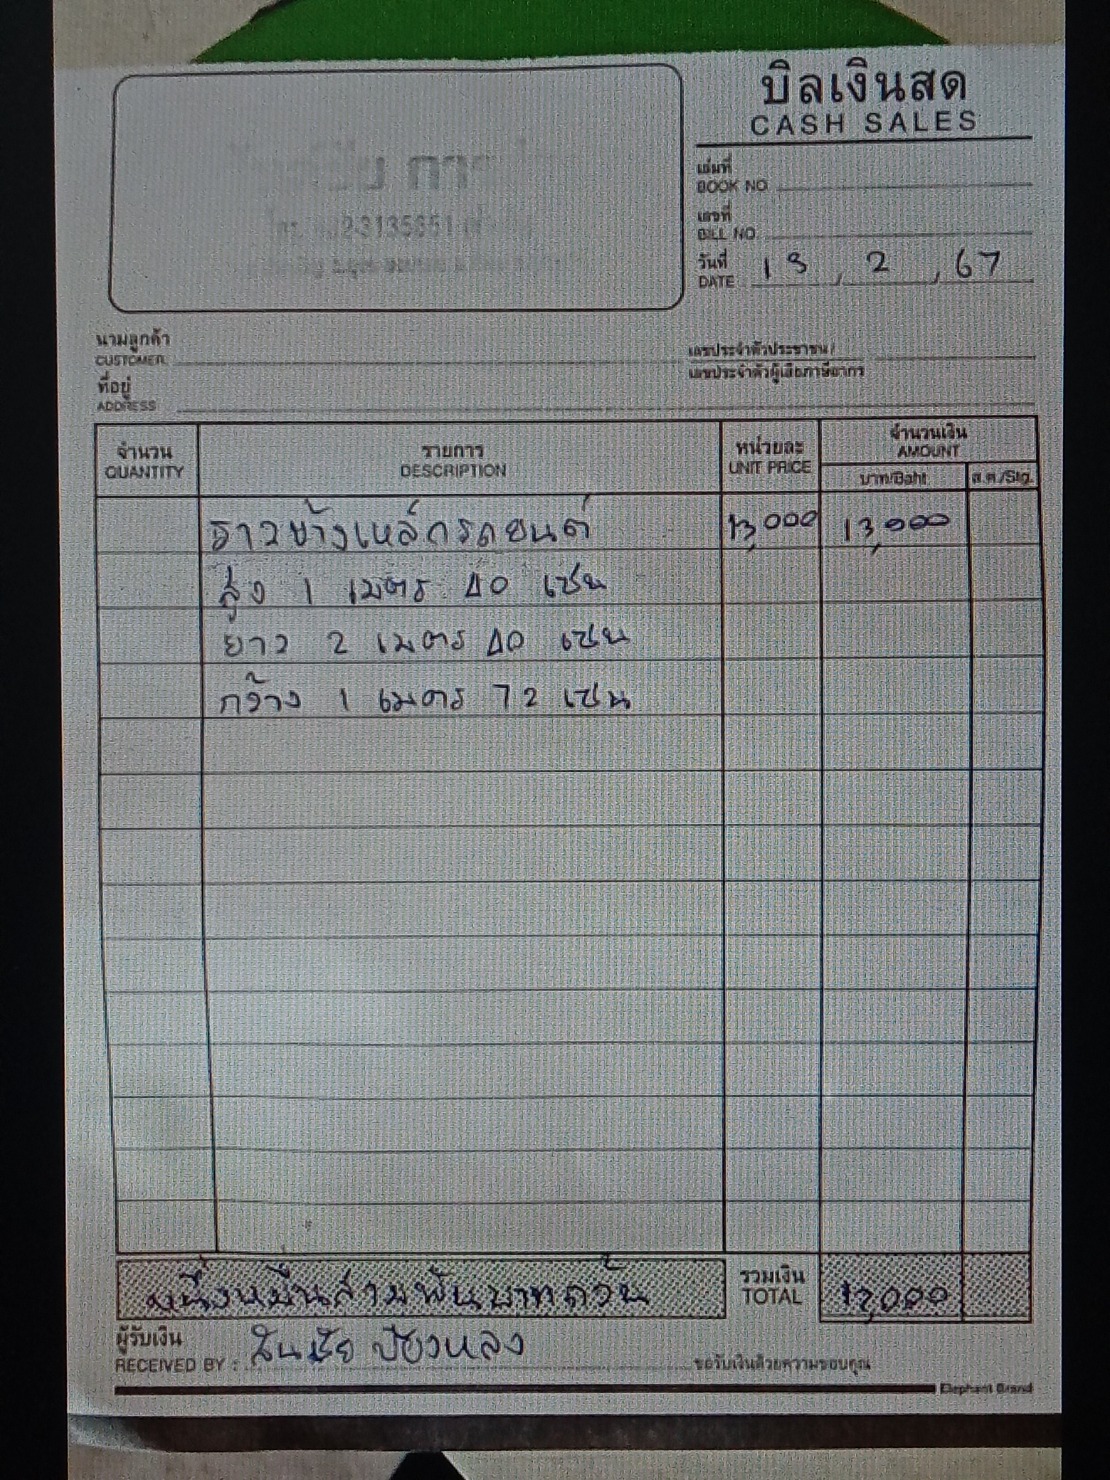 บิลเงินสด
CASH SALES
เล่มที่
BOOK NO.
เลขที่
BILL NO.
วันที่ 13, 2, 67
DATE
นามลูกค้า
CUSTOMER
เลขประจำตัวประชาชน/
เลขประจำตัวผู้เสียภาษีอากร
ที่อยู่
ADDRESS
จำนวน รายการ หน่วยละ จำนวนเงิน
QUANTITY DESCRIPTION UNIT PRICE AMOUNT
บาท/Baht ส.ต./Stg.
ราวข้างเหล็กรถยนต์ 13,000 13,000
สูง 1 เมตร 40 เซน
ยาว 2 เมตร 40 เซน
กว้าง 1 เมตร 72 เซน
หนึ่งหมื่นสามพันบาทถ้วน รวมเงิน 13,000
TOTAL
ผู้รับเงิน
RECEIVED BY :
ขอรับเงินด้วยความขอบคุณ
Elephant Brand